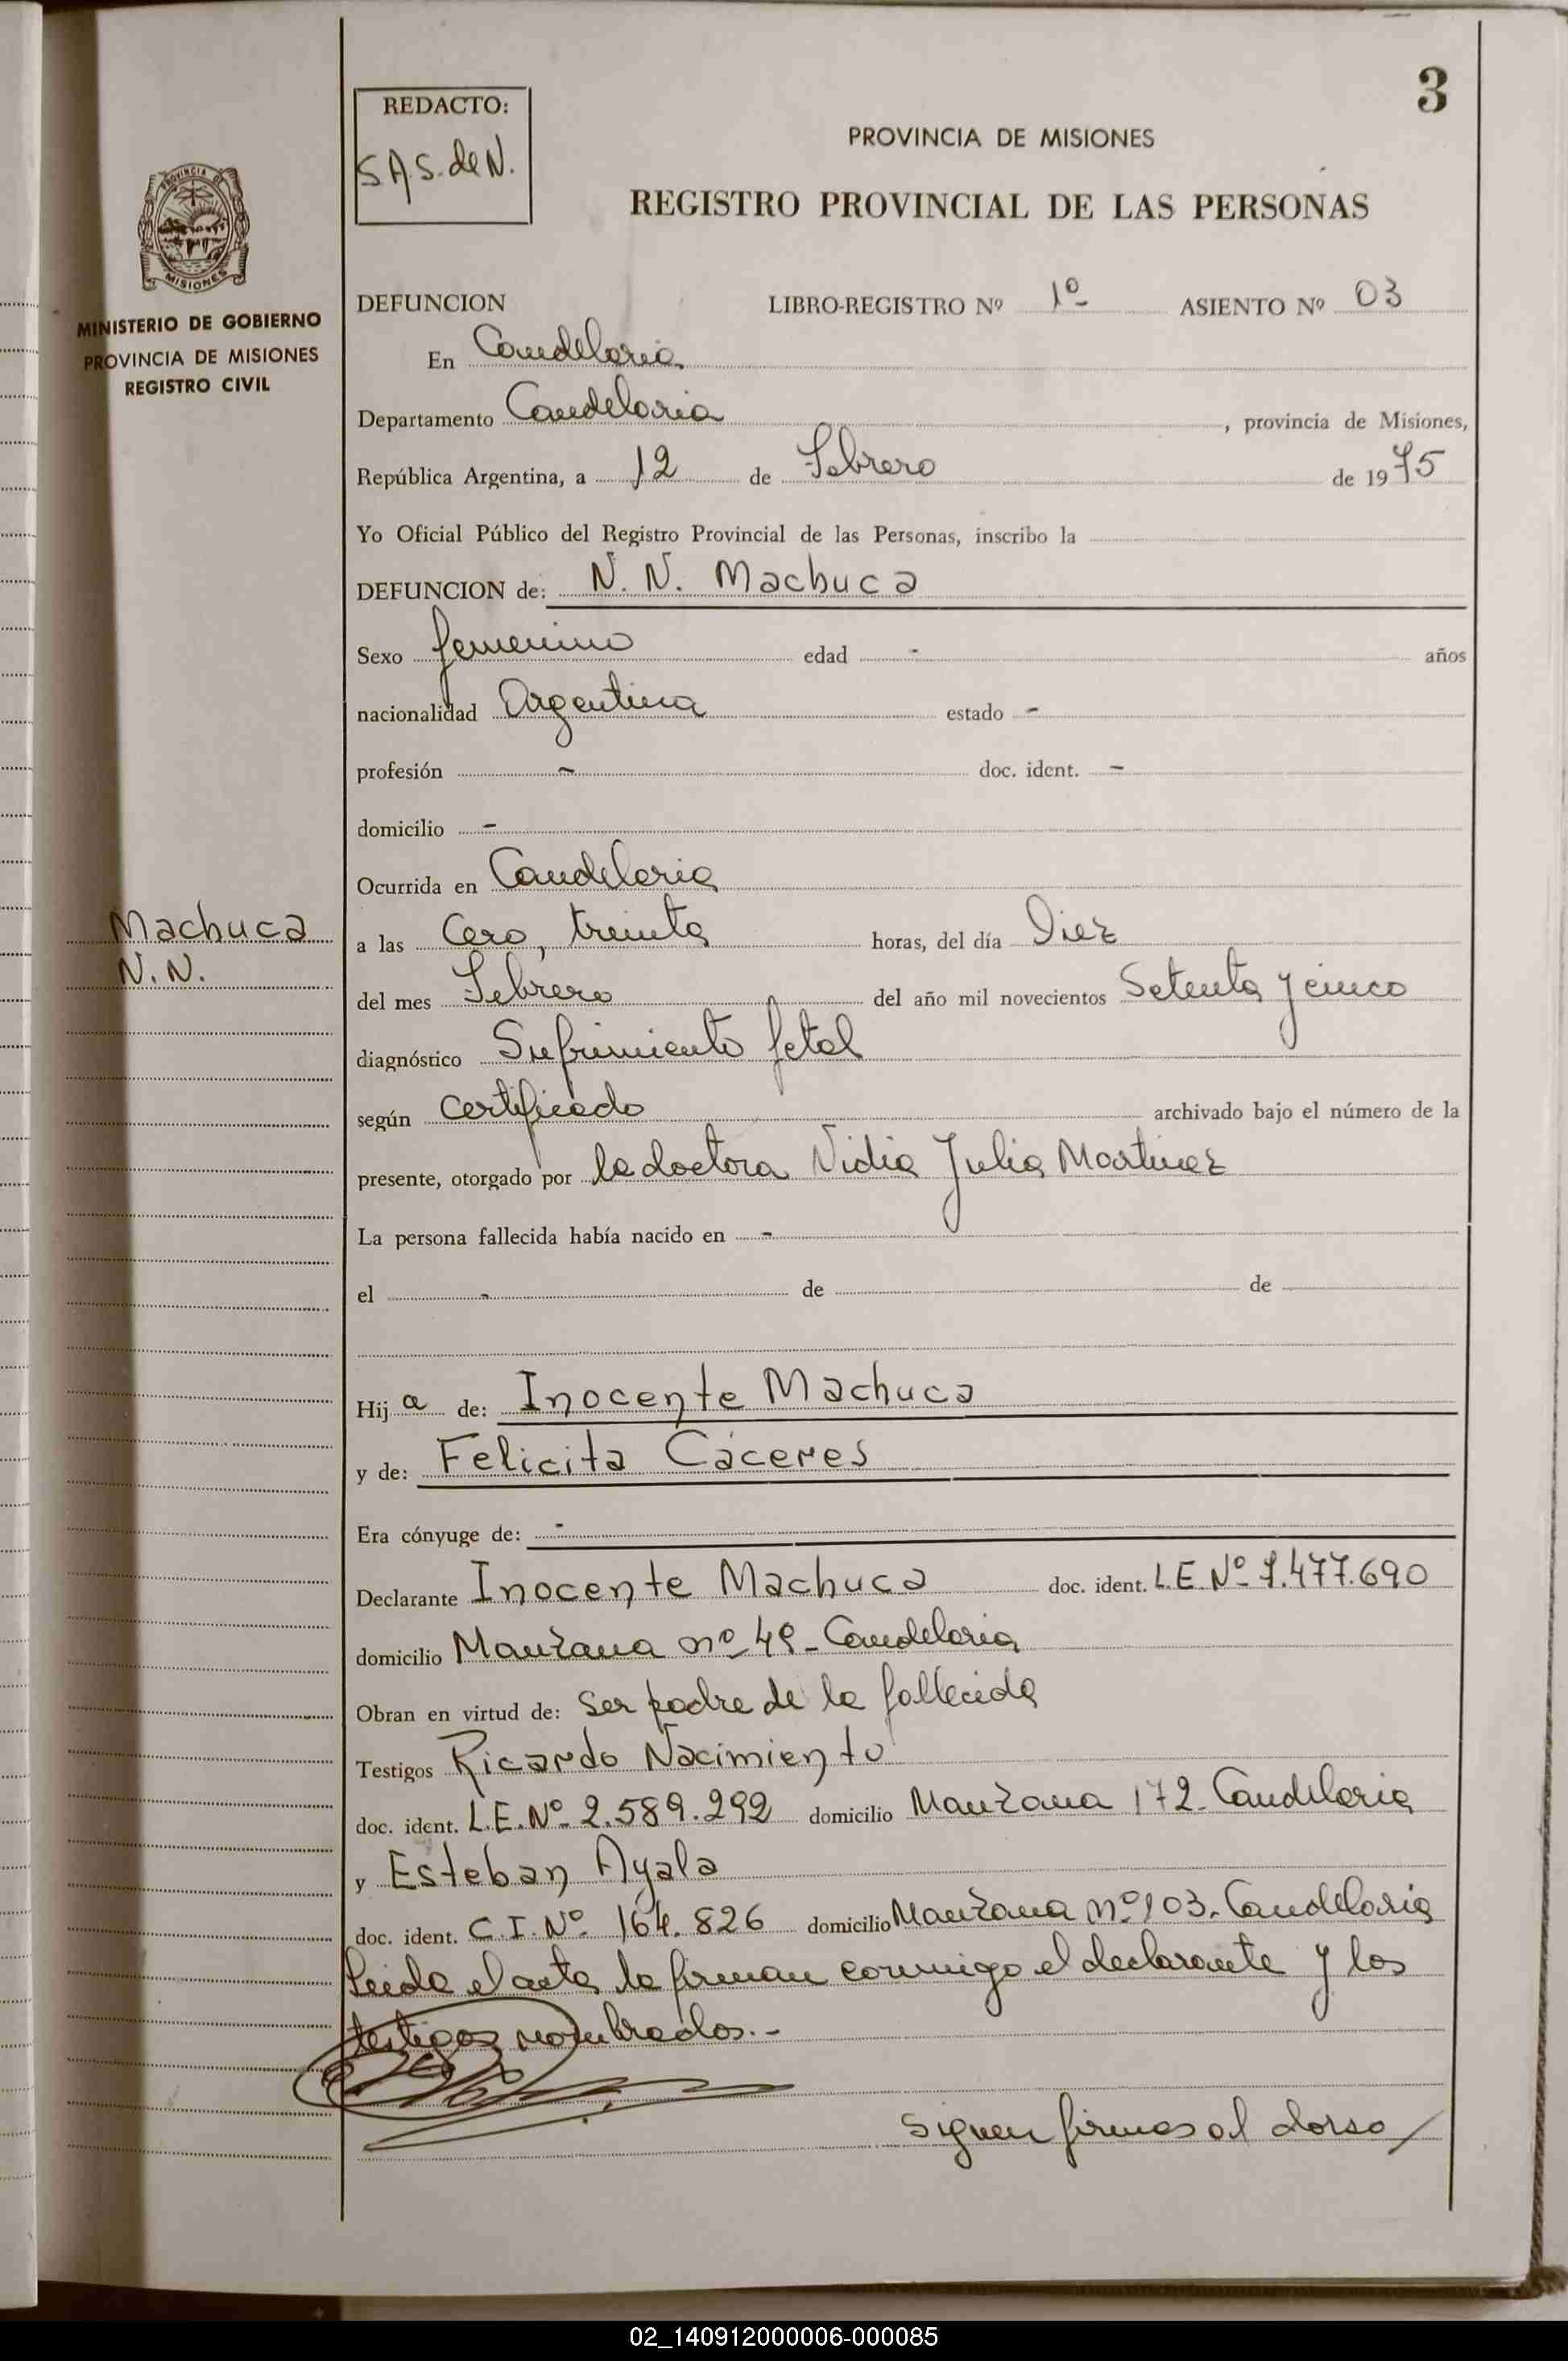 3
REDACTO:
S.A.S. de N.
PROVINCIA DE MISIONES
REGISTRO PROVINCIAL DE LAS PERSONAS
PROVINCIA DE
MISIONES
MINISTERIO DE GOBIERNO
PROVINCIA DE MISIONES
REGISTRO CIVIL
DEFUNCION LIBRO-REGISTRO Nº 1º ASIENTO Nº 03
En Candelaria
Departamento Candelaria, provincia de Misiones,
República Argentina, a 12 de Febrero de 1975
Yo Oficial Público del Registro Provincial de las Personas, inscribo la
DEFUNCION de: N. N. Machuca
Sexo femenino edad - años
nacionalidad Argentina estado -
profesión - doc. ident. -
domicilio -
Ocurrida en Candelaria
Machuca
N. N.
a las Cero, treinta horas, del día Diez
del mes Febrero del año mil novecientos Setenta y cinco
diagnóstico Sufrimiento fetal
según certificado archivado bajo el número de la
presente, otorgado por la doctora Nidia Julia Martinez
La persona fallecida había nacido en -
el - de de
Hija de: Inocente Machuca
y de: Felicita Cáceres
Era cónyuge de: -
Declarante Inocente Machuca doc. ident. L.E. Nº 7.477.690
domicilio Manzana nº 49 - Candelaria
Obran en virtud de: ser padre de la fallecida
Testigos Ricardo Nacimiento
doc. ident. L.E. Nº 2.589.292 domicilio Manzana 172 - Candelaria
y Esteban Ayala
doc. ident. C.I. Nº 164.826 domicilio Manzana nº 103 - Candelaria
Leida el acta, la firman conmigo el declarante y los
testigos nombrados.-
Siguen firmas al dorso/
02_140912000006-000085